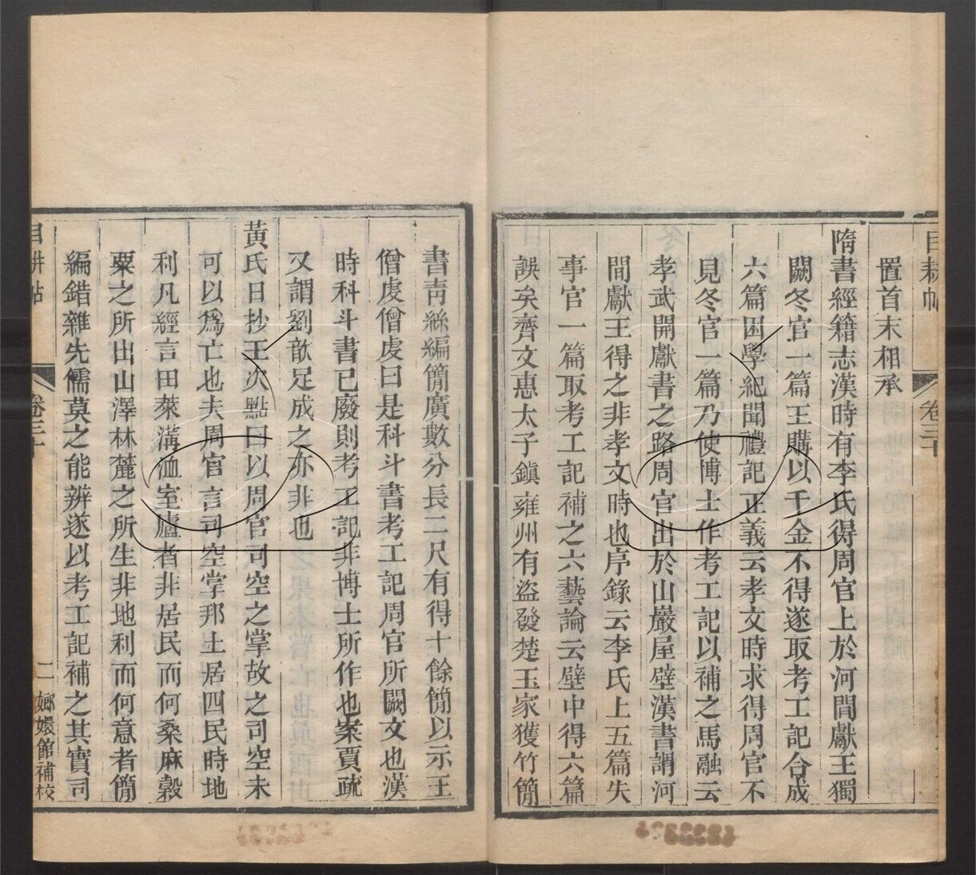 目耕帖
卷三十
置首末相承
隋書經籍志漢時有李氏得周官上於河間獻王獨
闕冬官一篇王購以千金不得遂取考工記合成
六篇困學紀聞禮記正義云孝文時求得周官不
見冬官一篇乃使博士作考工記以補之馬融云
孝武開獻書之路周官出於山巖屋壁漢書謂河
間獻王得之非孝文時也序錄云李氏上五篇失
事官一篇取考工記補之六藝論云壁中得六篇
誤矣齊文惠太子鎮雍州有盜發楚王冢獲竹簡
書青絲編簡廣數分長二尺有得十餘簡以示王
僧虔僧虔曰是科斗書考工記周官所闕文也漢
時科斗書已廢則考工記非博士所作也案賈疏
又謂劉歆足成之亦非也
黃氏日抄王次點曰以周官司空之掌故之司空未
可以爲亡也夫周官言司空掌邦土居四民時地
利凡經言田萊溝洫室廬者非居民而何桑麻穀
粟之所出山澤林麓之所生非地利而何意者簡
編錯雜先儒莫之能辨遂以考工記補之其實司
目耕帖
卷三十
二
嫏嬛館補校